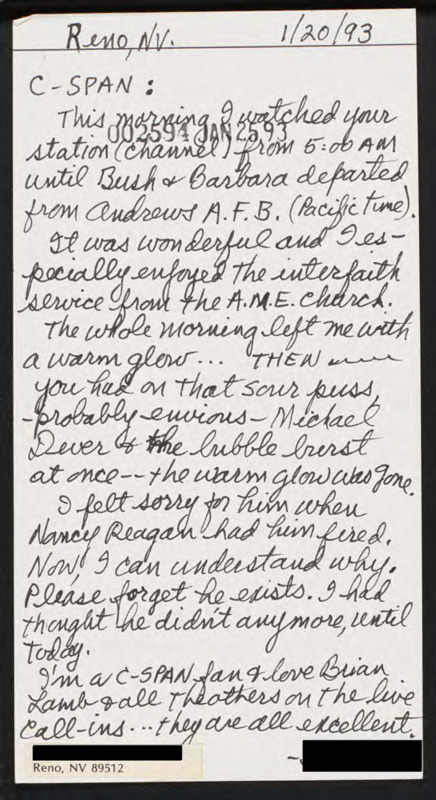 Reno, NV. 1/20/93
C-SPAN:
This morning I watched your
002594 JAN 25 93
station (channel) from 5:00 AM
until Bush & Barbara departed
from Andrews A.F.B. (Pacific time).
It was wonderful and I es-
pecially enjoyed the interfaith
service from the A.M.E. church.
The whole morning left me with
a warm glow... THEN
you had on that sour puss,
-probably envious- Michael
Dever & the bubble burst
at once--the warm glow was gone.
I felt sorry for him when
Nancy Reagan had him fired.
Now, I can understand why.
Please forget he exists. I had
thought he didn't anymore, until
today.
I'm a C-SPAN fan & love Brian
Lamb & all the others on the live
call-ins... they are all excellent.
Reno, NV 89512